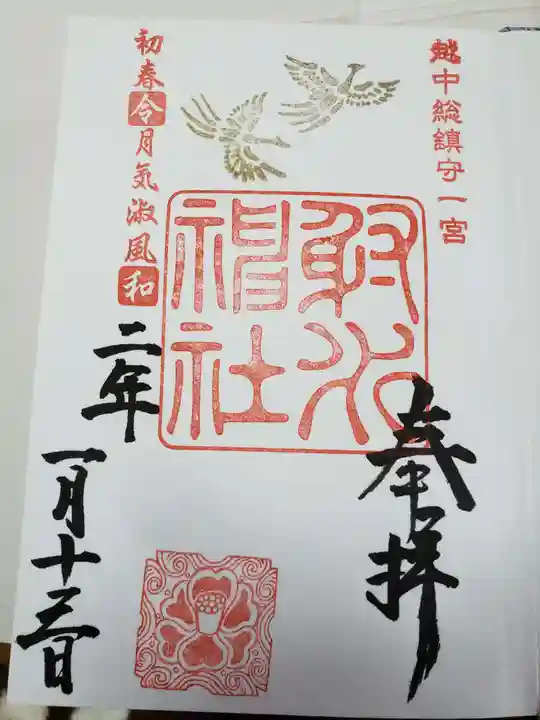 越中総鎮守一宮
奉拝
射水
神社
初春令月気淑風和
二年
一月十三日